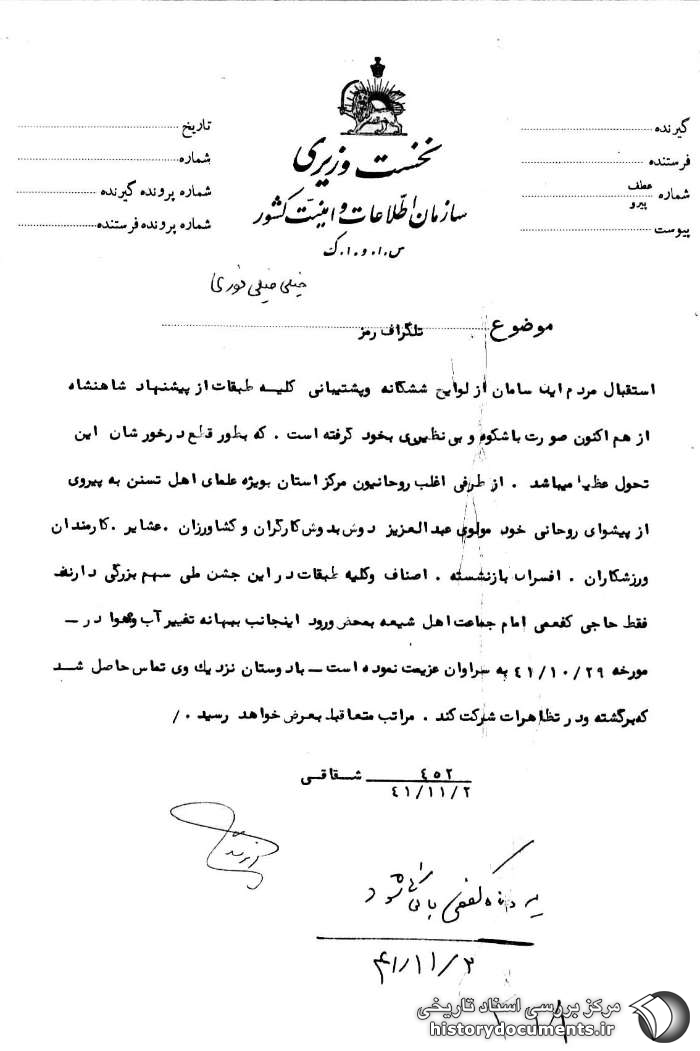 نخست وزیری
سازمان اطلاعات و امنیت کشور
س.ا.و.ا.ک
گیرنده
فرستنده
شماره عطف پیرو
پیوست
تاریخ
شماره
شماره پرونده گیرنده
شماره پرونده فرستنده
خیلی خیلی فوری
موضوع تلگراف رمز
استقبال مردم این سامان از لوایح ششگانه وپشتیبانی کلیه طبقات از پیشنهاد شاهنشاه
از هم اکنون صورت باشکوه و بی نظیری بخود گرفته است . که بطور قطع درخورشان این
تحول عظیم میباشد . از طرفی اغلب روحانیون مرکز استان بویژه علمای اهل تسنن به پیروی
از پیشوای روحانی خود مولوی عبدالعزیز دوش بدوش کارگران و کشاورزان .عشایر .کارمندان
ورزشکاران . افسران بازنشسته . اصناف وکلیه طبقات در این جشن ملی سهم بزرگی دارند
فقط حاجی کفعمی امام جماعت اهل شیعه بمحض ورود اینجانب ببهانه تغییر آب وهوا در ــ
مورخه ۴۱/۱۰/۲۹ به سراوان عزیمت نموده است ــ با دوستان نزدیك وی تماس حاصل شد
که برگشته ودر تظاهرات شرکت کند . مراتب متعاقبا بعرض خواهد رسید ./
۴۵۲ شقاقی
۴۱/۱۱/۲
به پرونده کفعمی بایگانی شود
۴۱/۱۱/۲
مرکز بررسی اسناد تاریخی
historydocuments.ir